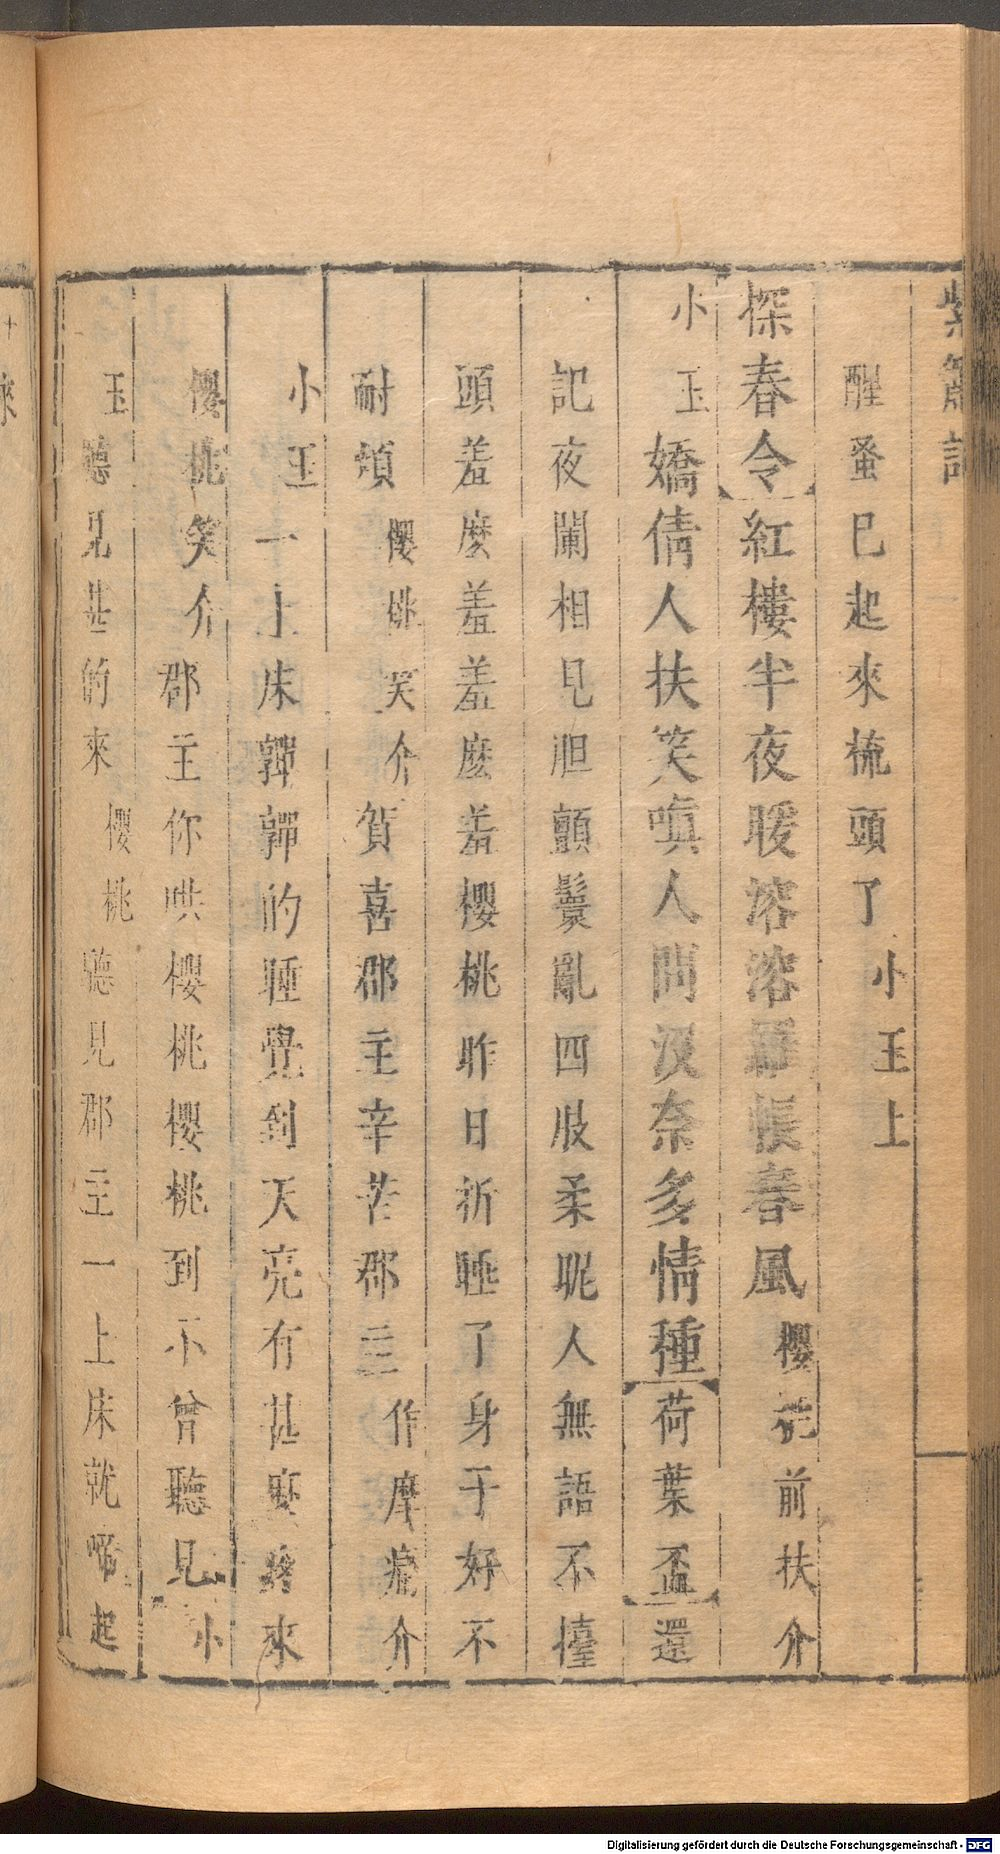 紫簫記
醒蚤已起來梳頭了小玉上
探春令紅樓半夜暖溶溶羅帳春風櫻桃前扶介
小玉嬌倩人扶笑嗔人問沒奈多情種荷葉盃還
記夜闌相見胆顫鬟亂四肢柔昵人無語不擡
頭羞麼羞羞麼羞櫻桃昨日祈睡了身于好不
耐煩櫻桃笑介賀喜郡主辛苦郡主作摩痛介
小玉一上床嚲嚲的睡覺到天亮有甚麼疼來
櫻桃笑介郡主你哄櫻桃櫻桃到不曾聽見小
玉聽見甚的來櫻桃聽見郡主一上床就啼起
Digitalisierung gefördert durch die Deutsche Forschungsgemeinschaft - DFG